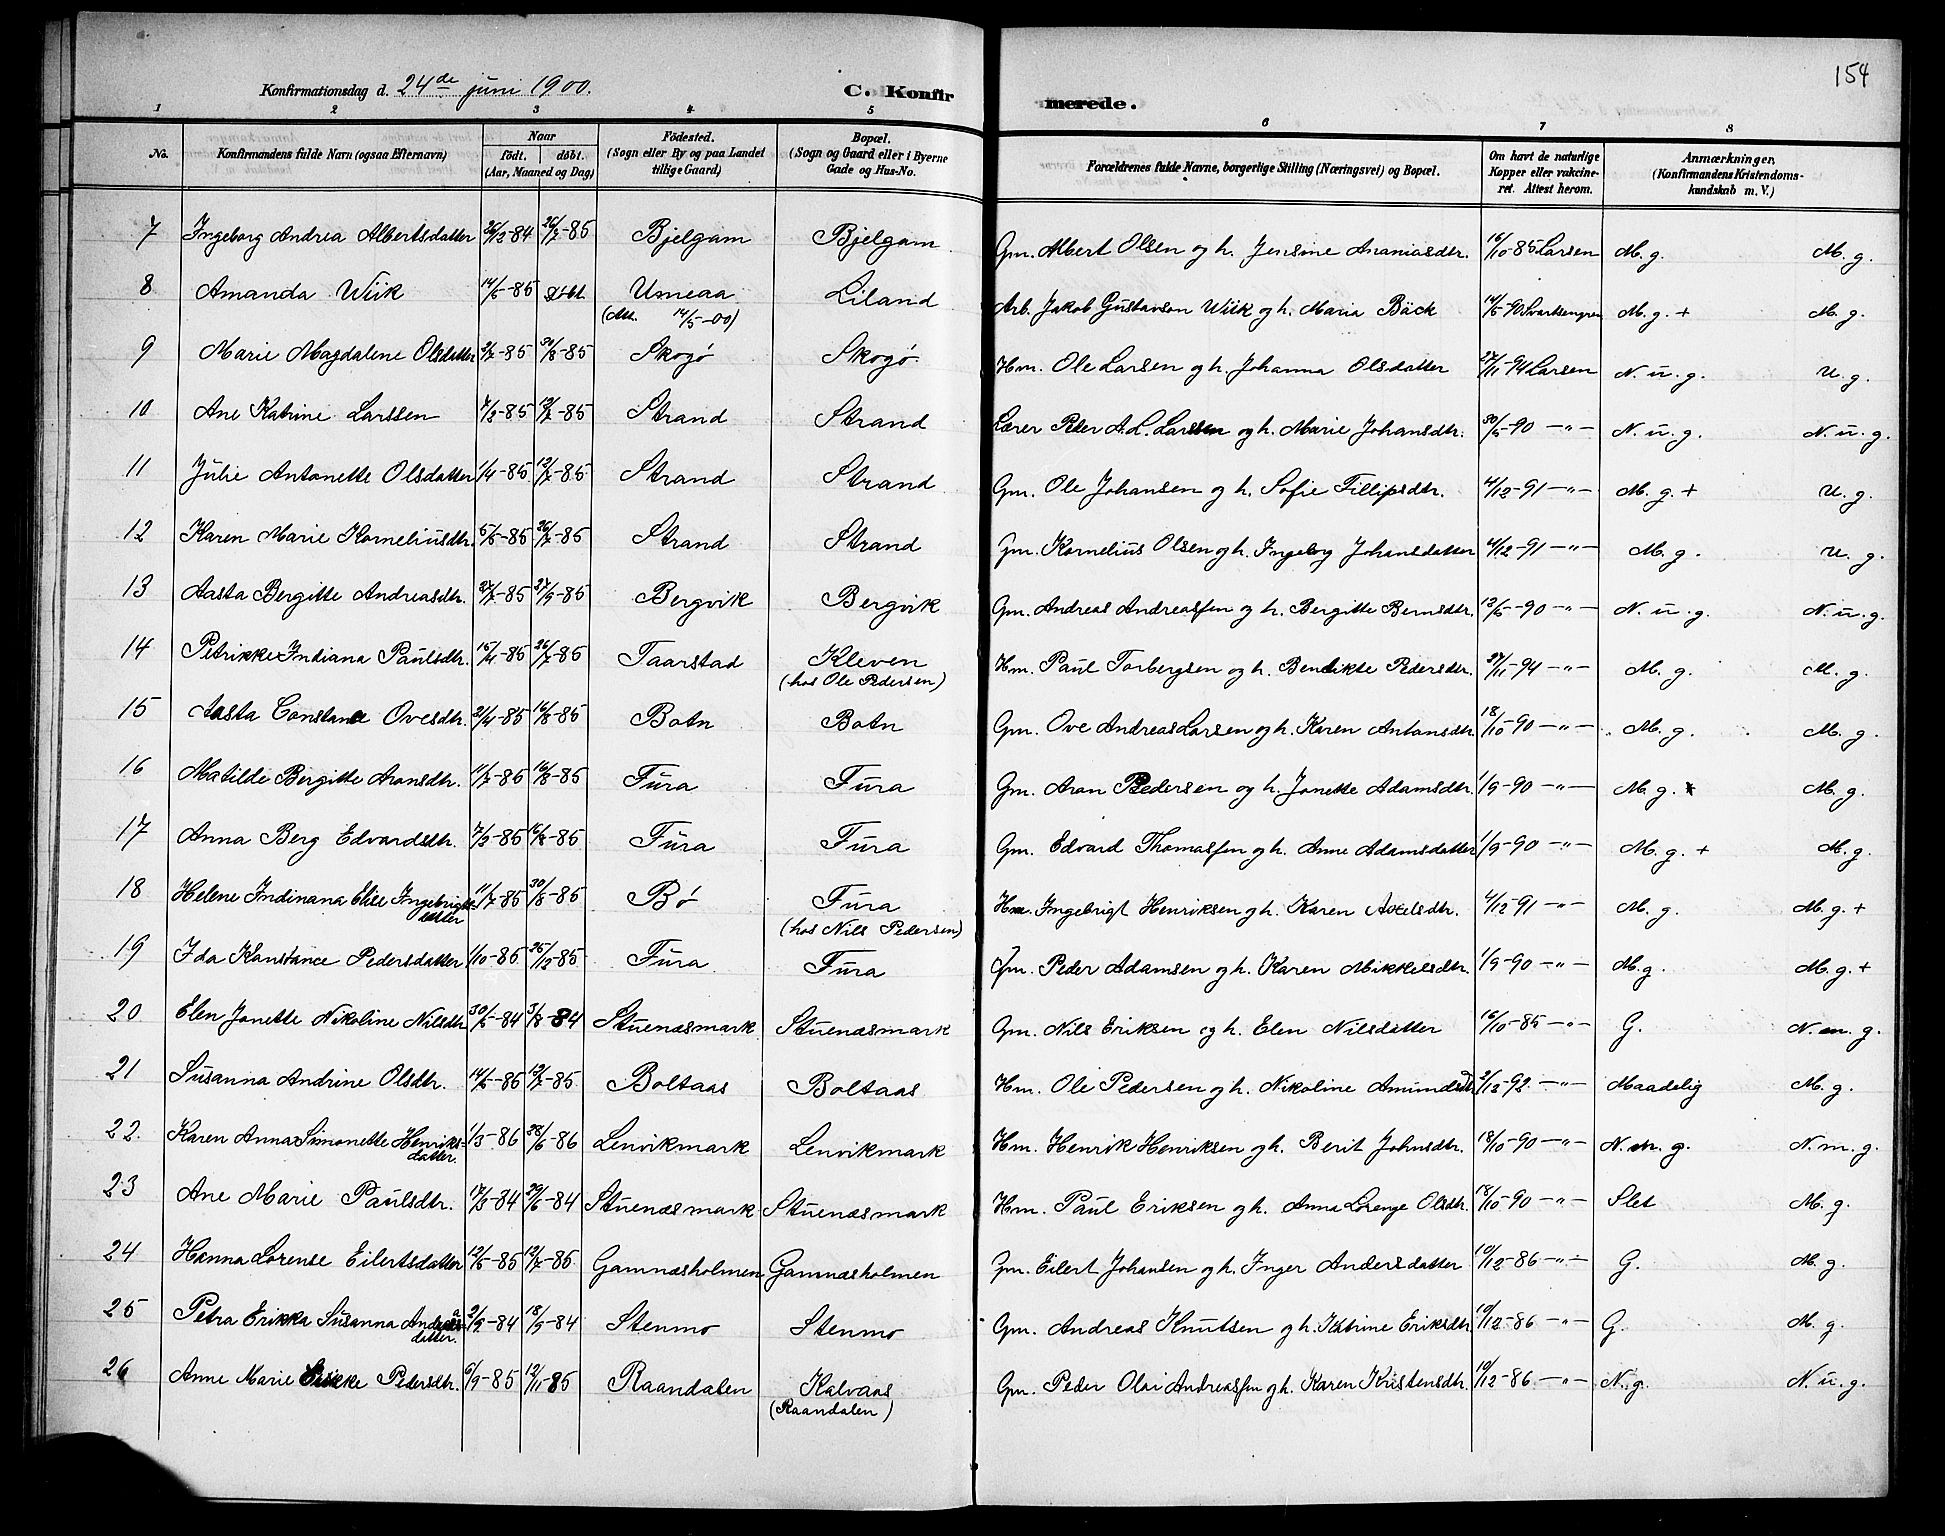 154
Konfirmationsdag d. 24de juni 1900. C. Konfirmerede.
1 2 3 4 5 6 7 8
No. Konfirmandens fulde Navn (ogsaa Efternavn) Naar født. døbt. (Aar, Maaned og Dag) Fødested. (Sogn eller By og paa Landet tillige Gaard) Bopæl. (Sogn og Gaard eller i Byerne Gade og Hus-No. Forældrenes fulde Navne, borgerlige Stilling (Næringsvei) og Bopæl. Om havt de naturlige Kopper eller vakcineret. Attest herom. Anmærkninger. (Konfirmandens Kristendomskundskab m. V.)
7 Ingeborg Andrea Albertsdatter 26/12-84 26/7-85 Bjelgam Bjelgam Gm. Albert Olsen og h. Jensine Ananiasdtr. 16/10-85 Larsen M. g. M. g.
8 Amanda Wiik 14/5-85 Umeaa (Att. 14/5-00) Liland Arb. Jakob Gustavson Wiik og h. Maria Bäck 14/5-90 M. g. + M. g.
9 Marie Magdalene Olsdatter 2/7-85 30/8-85 Skogø Skogø Hm. Ole Larsen og h. Johanna Olsdatter 27/11-94 Larsen N. u. g. u. g.
10 Ane Katrine Larssen 7/2-85 12/7-85 Strand Strand Lærer Peder A. L. Larssen og h. Marie Johansdtr. 30/5-90 -"- N. u. g. N. u. g.
11 Julie Antonette Olsdatter 1/4-85 12/7-85 Strand Strand Gm. Ole Johansen og h. Sofie Fillipsdtr. 4/12-91 -"- M. g. + u. g.
12 Karen Marie Korneliusdtr. 5/5-85 26/7-85 Strand Strand Gm. Kornelius Olsen og h. Ingebog Johansdatter 4/12-91 -"- M. g. u. g.
13 Aasta Bergitte Andreasdtr. 27/7-85 27/9-85 Bergvik Bergvik Gm. Andreas Andreassen og h. Bergitte Berntsdtr. 12/5-90 -"- N. u. g. N. u. g.
14 Petrikke Indiana Paulsdtr. 15/4-85 26/7-85 Taarstad Kleven (hos Ole Pedersen) Hm. Paul Torbergsen og h. Bendikte Pedersdtr. 27/11-94 -"- M. g. M. g.
15 Aasta Constance Ovesdtr. 21/4-85 16/8-85 Botn Botn Gm. Ove Andreas Larsen og h. Karen Antonsdtr 18/10-90 -"- M. g. M. g.
16 Matilde Bergitte Aronsdtr. 11/7-85 16/8-85 Fura Fura Gm. Aron Pedersen og h. Jonette Adamsdtr. 1/9-90 -"- M. g. M. g.
17 Anna Berg Edvardsdtr. 7/3-85 16/8-85 Fura Fura Gm. Edvard Thomassen og h. Anne Adamsdatter 1/9-90 -"- M. g. + M. g.
18 Helene Indinana Elise Ingebrigtsdatter 11/7-85 30/8-85 Bø Fura (hos Nils Pedersen) Hm. Ingebrigt Henriksen og h. Karen Axelsdtr. 4/12-91 -"- M. g. M. g. +
19 Ida Konstance Pedersdatter 1/10-85 25/12-85 Fura Fura Gm. Peder Adamsen og h. Karen Mikkelsdtr. 1/9-90 -"- M. g. M. g. +
20 Elen Jonette Nikoline Nilsdtr 30/5-84 3/8-84 Stuenæsmark Stuenæsmark Gm. Nils Eriksen og h. Elen Nilsdatter 16/10-85 -"- G. N. m. g.
21 Susanna Andrine Olsdtr. 14/5-85 12/7-85 Boltaas Boltaas Hm. Ole Pedersen og h. Nikoline Amundsdtr 2/12-92 -"- Maadelig M. g.
22. Karen Anna Simonette Henriksdatter. 1/3-86 28/6-86 Lenvikmark Lenvikmark Hm. Henrik Henriksen og h. Berit Johnsdtr. 18/10-90 -"- N. m. g. N. m. g.
23 Ane Marie Paulsdtr. 17/3-84 29/6-84 Stuenæsmark Stuenæsmark Hm. Paul Eriksen og h. Anna Lorenze Olsdtr. 18/10-90 -"- Slet M. g.
24 Hanna Lorense Eilertsdatter 12/5-85 12/7-85 Gamnæsholmen Gamnæsholmen Gm. Eilert Johansen og h. Inger Andersdatter 10/12-86 -"- G. M. g.
25 Petra Erikka Susanna Andreasdatter. 2/9-84 18/9-84 Stenmo Stenmo Gm. Andreas Knutsen og h. Katrine Eriksdtr 10/12-86 -"- G. M. g.
26 Anne Marie Pedersdtr. 6/9-85 12/11-85 Raandalen Kalvaas (Raandalen) Gm. Peder Olai Andreassen og h. Karen Kristensdtr. 10/12-86 -"- N. g. N. u. g.